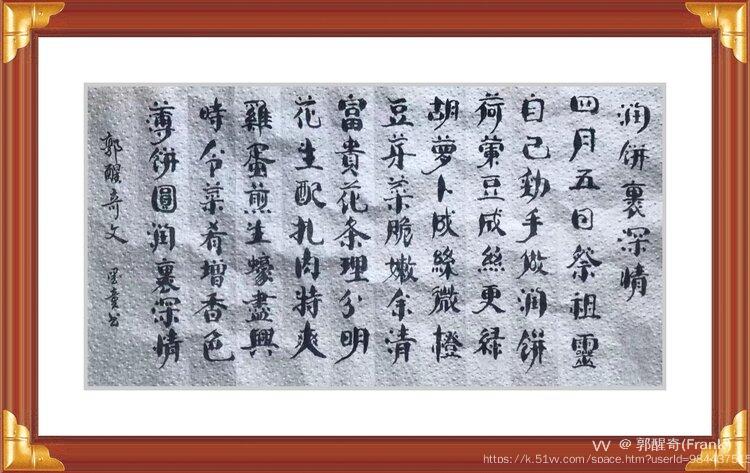 润餅裹深情
四月五日祭祖靈
自己動手做润餅
荷蘭豆成絲更绿
胡萝卜成絲微橙
豆芽菜脆嫩余清
富貴花条理分明
花生配扎肉特爽
雞蛋煎生蠔盡興
時令菜肴增香色
薄餅圓润裹深情
郭醒奇文
VV @ 郭醒奇(Frank)
https://k.51vv.com/space.htm?userId=984437515